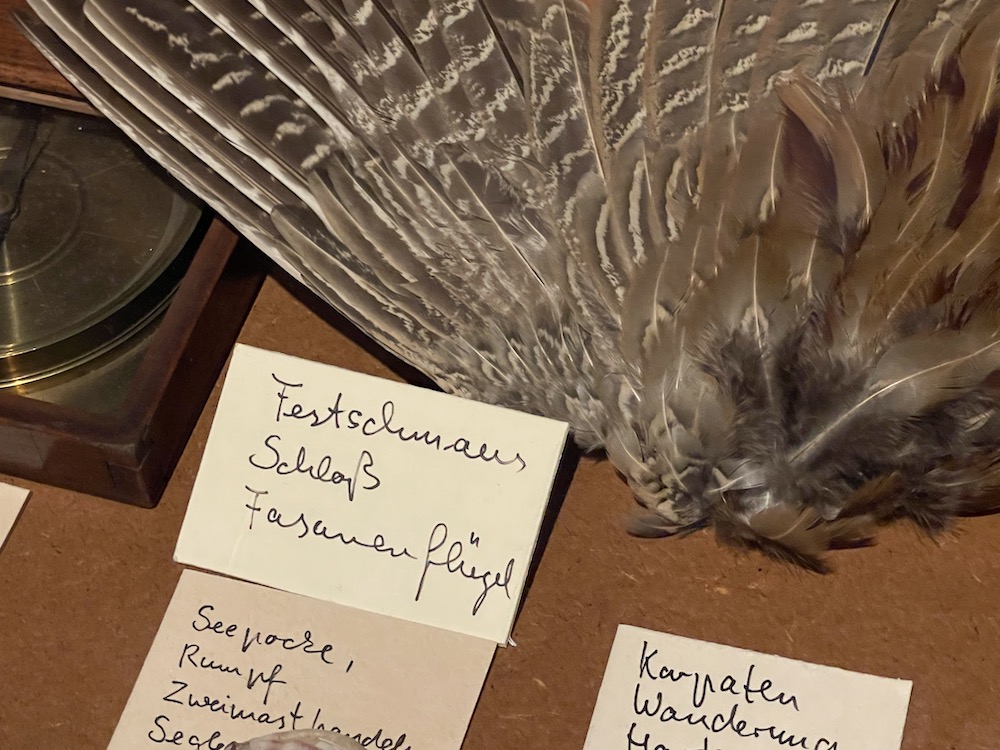 Festschmaus
Schloß
Fasanenflügel
Seepocke,
Rumpf
Zweimasthandels
Karpaten
Wanderung